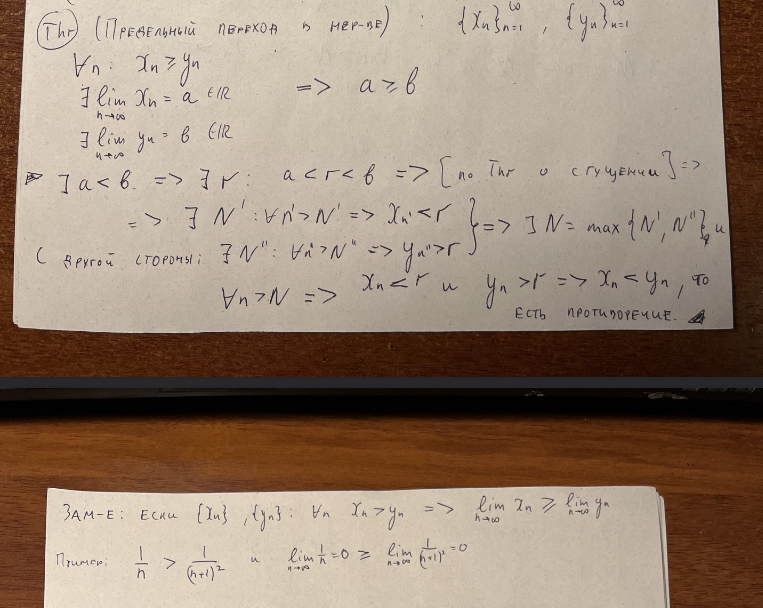 Thr (Предельный переход в нер-ве) : {xn}∞n=1 , {yn}∞n=1
∀n: xn ≥ yn
∃ lim n→∞ xn = a ∈ℝ => a ≥ b
∃ lim n→∞ yn = b ∈ℝ
▷ ∃ a < b. => ∃ r : a < r < b => [по Thr о сгущении] =>
=> ∃ N' : ∀n' > N' => xn' < r } => ∃ N = max {N', N''}, и
С другой стороны: ∃ N'' : ∀n'' > N'' => yn'' > r
∀n > N => xn < r и yn > r => xn < yn, то
есть противоречие.
Зам-е: Если {xn} , {yn} : ∀n xn > yn => lim n→∞ xn ≥ lim n→∞ yn
Пример: 1/n > 1/(n+1)² и lim n→∞ 1/n = 0 ≥ lim n→∞ 1/(n+1)² = 0